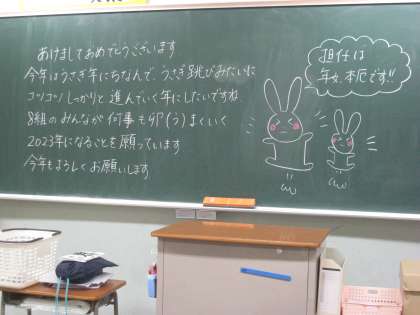 あけましておめでとうございます
今年はうさぎ年にちなんで、うさぎ跳びみたいに
コツコツしっかりと進んでいく年にしたいですね
8組のみんなが何事も卯(う)まくいく
2023年になることを願っています
今年もよろしくお願いします
担任は
年女、本厄です!!